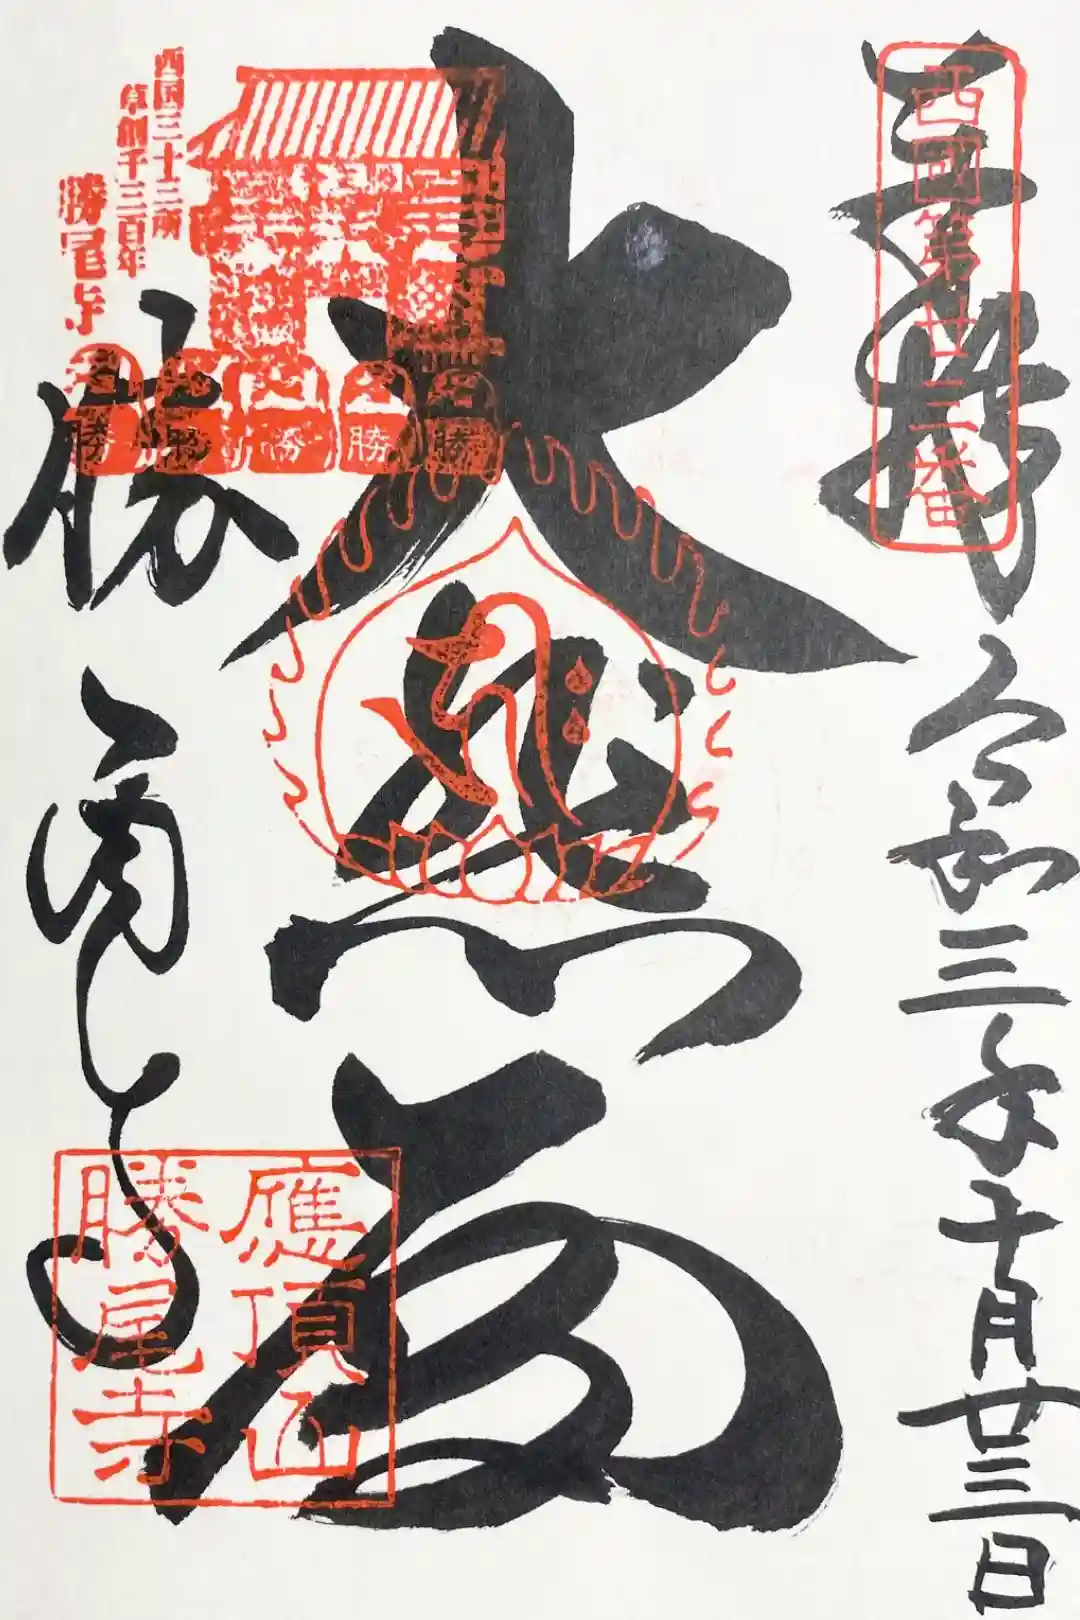 奉拝
令和三年十月廿三日
西國第廿三番
大悲殿
勝尾寺
西国三十三所
草創千三百年
勝尾寺
勝
勝
勝
勝
勝
應頂山
勝尾寺